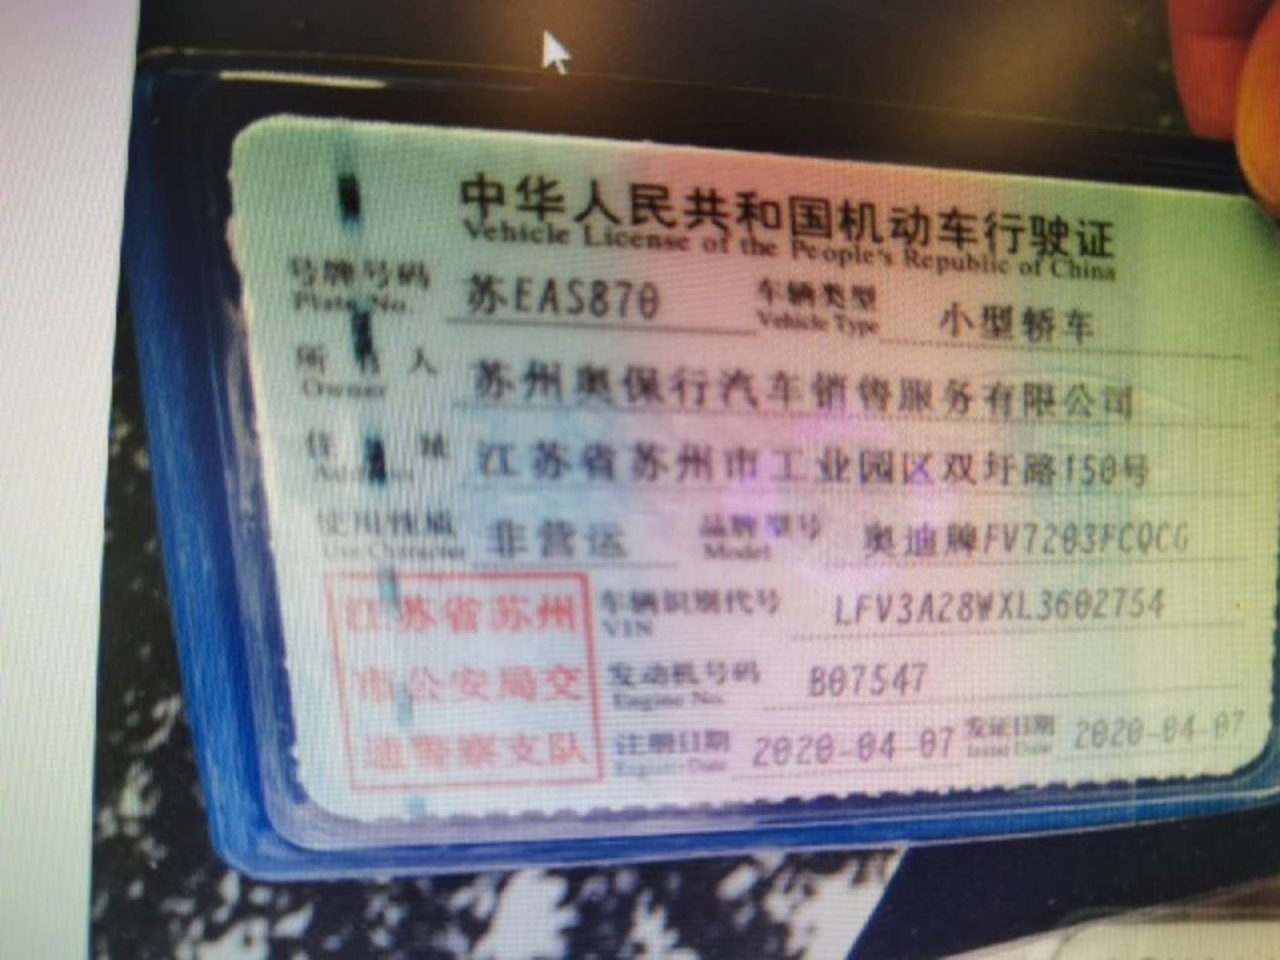 中华人民共和国机动车行驶证
Vehicle License of the People's Republic of China
号牌号码 苏EAS870 车辆类型 小型轿车
Plate No. Vehicle Type
所有人 苏州奥保行汽车销售服务有限公司
Owner
住址 江苏省苏州市工业园区双圩路150号
使用性质 非营运 品牌型号 奥迪牌FV7203FCQCG
Use Character Model
江苏省苏州 车辆识别代号 LFV3A28WXL3602754
VIN
市公安局交 发动机号码 B07547
Engine No.
通警察支队 注册日期 2020-04-07 发证日期 2020-04-07
Register Date Issue Date